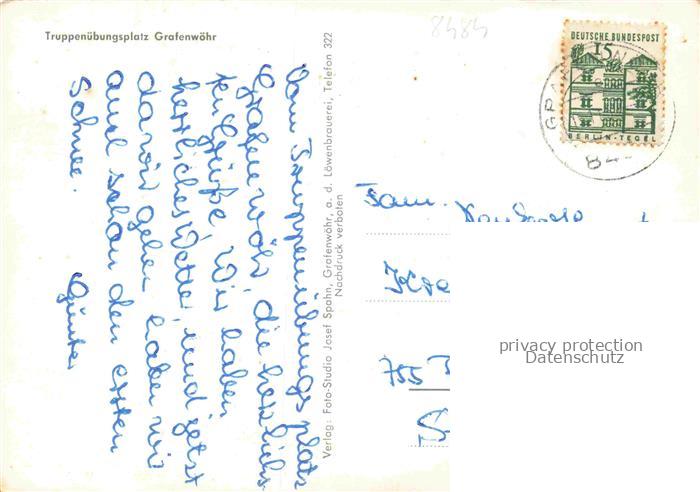 Truppenübungsplatz Grafenwöhr
8484
DEUTSCHE BUNDESPOST
15
BERLIN-TEGEL
Vom Truppenübungsplatz
Grafenwöhr, die herzlichs-
ten Grüße. Wir haben
herrliches Wetter, und jetzt
davor haben wir
auch schon den ersten
Schnee.
Günter
Verlag: Foto-Studio Josef Spahn, Grafenwöhr, a. d. Löwenbrauerei, Telefon 322
Nachdruck verboten
Fam.
755
privacy protection
Datenschutz